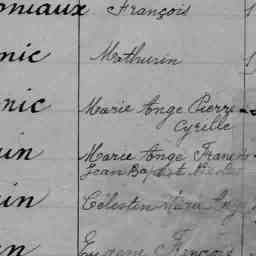 oniaux François
nic Mathurin
nic Marie Ange Pierre
Cyrille
in Marie Ange François
Jean Bapt
in Célestin Marie Ange
in Eugène François